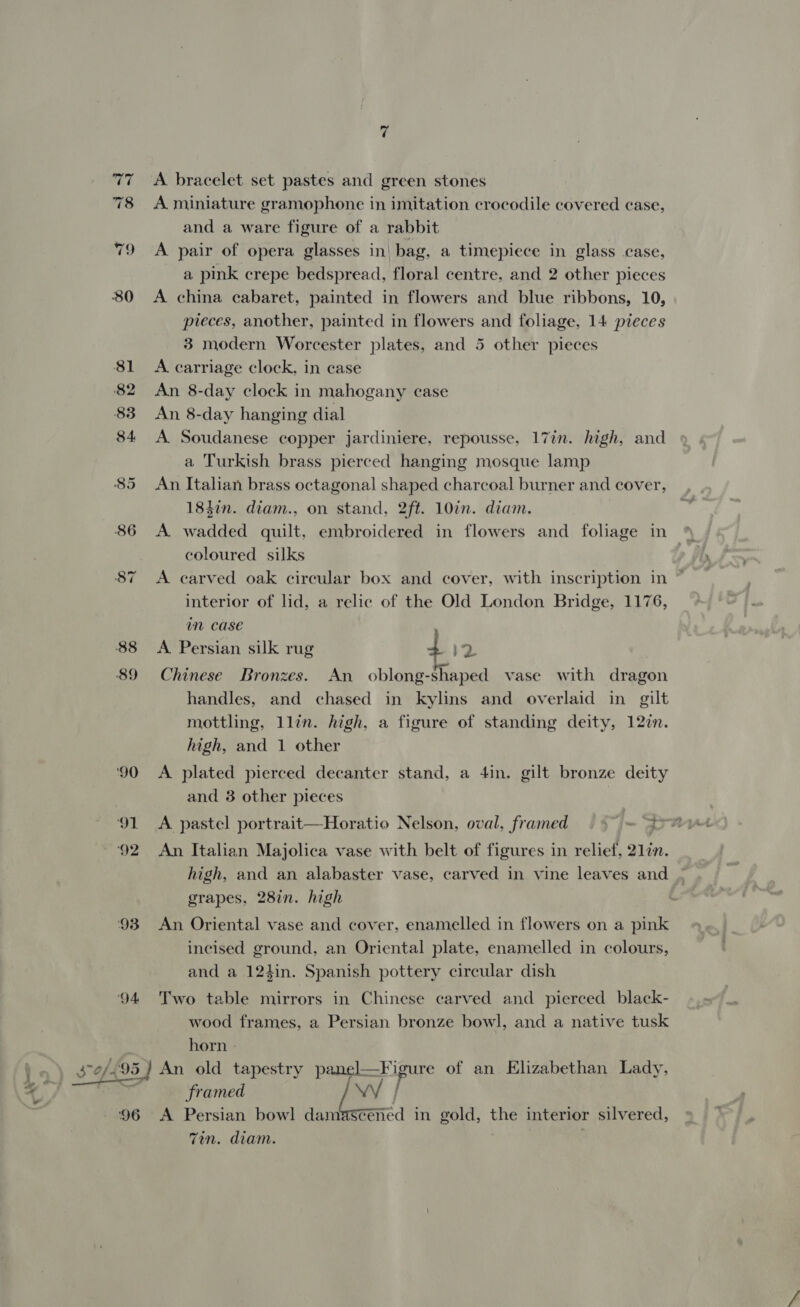 7
77 A bracelet set pastes and green stones
78 A miniature gramophone in imitation crocodile covered case,
and a ware figure of a rabbit
79 A pair of opera glasses in bag, a timepiece in glass case,
a pink crepe bedspread, floral centre, and 2 other pieces
80 A china cabaret, painted in flowers and blue ribbons, 10,
pieces, another, painted in flowers and foliage, 14 pieces
3 modern Worcester plates, and 5 other pieces
81 A carriage clock, in case
82 An 8-day clock in mahogany case
83 An 8-day hanging dial
84 A Soudanese copper jardiniere, repousse, 17in. high, and
a Turkish brass pierced hanging mosque lamp
85 An Italian brass octagonal shaped charcoal burner and cover,
18½in. diam., on stand, 2ft. 10in. diam.
86 A wadded quilt, embroidered in flowers and foliage in
coloured silks
87 A carved oak circular box and cover, with inscription in
interior of lid, a relic of the Old London Bridge, 1176,
in case
88 A Persian silk rug
89 Chinese Bronzes. An oblong-shaped vase with dragon
handles, and chased in kylins and overlaid in gilt
mottling, 11in. high, a figure of standing deity, 12in.
high, and 1 other
90 A plated pierced decanter stand, a 4in. gilt bronze deity
and 3 other pieces
91 A pastel portrait—Horatio Nelson, oval, framed
92 An Italian Majolica vase with belt of figures in relief, 21in.
high, and an alabaster vase, carved in vine leaves and
grapes, 28in. high
93 An Oriental vase and cover, enamelled in flowers on a pink
incised ground, an Oriental plate, enamelled in colours,
and a 12½in. Spanish pottery circular dish
94 Two table mirrors in Chinese carved and pierced black-
wood frames, a Persian bronze bowl, and a native tusk
horn
95 An old tapestry panel—Figure of an Elizabethan Lady,
framed
96 A Persian bowl damascened in gold, the interior silvered,
7in. diam.